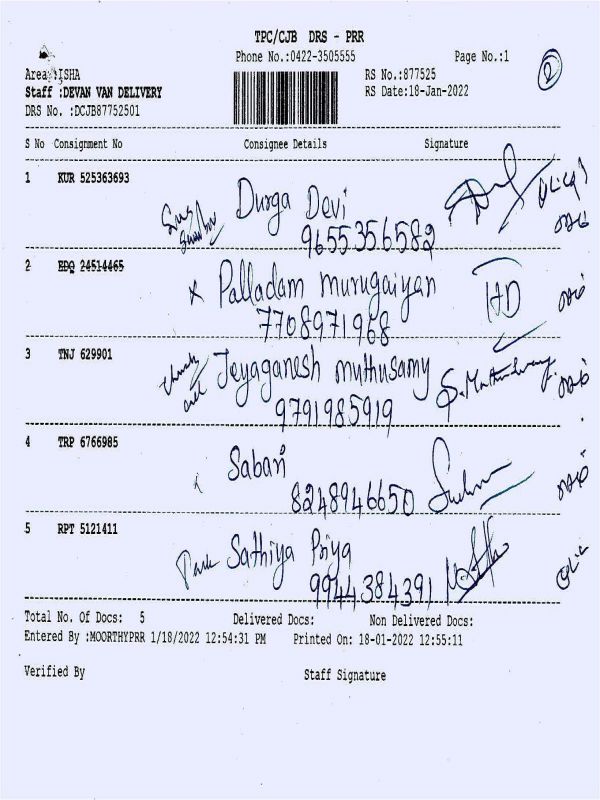 TPC/CJB DRS - PRR
Phone No.:0422-3505555 Page No.:1
2
Area :ISHA RS No.:877525
Staff :DEVAN VAN DELIVERY RS Date:18-Jan-2022
DRS No. :DCJB87752501
S No Consignment No Consignee Details Signature
1 KUR 525363693 Durga Devi
9655356582
2 EDQ 24514465 x Palladam murugaiyan HD
7708971968
3 TNJ 629901 Jeyaganesh muthusamy
9791985919
4 TRP 6766985 Sabari
8248946650
5 RPT 5121411 Sathiya Priya
9944384391
Total No. Of Docs: 5 Delivered Docs: Non Delivered Docs:
Entered By :MOORTHYPRR 1/18/2022 12:54:31 PM Printed On: 18-01-2022 12:55:11
Verified By Staff Signature